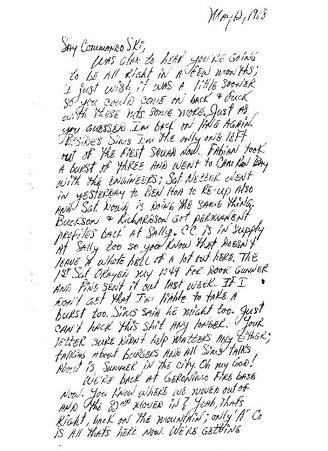 May 2, 1968
Say Commando Ski,
Was glad to hear you're going
to be all right in a few months;
I just wish it was a little sooner
so you could come on back & fuck
with these nuts some more. Just as
you guessed I'm back on line again.
Besides Sims I'm the only one left
out of the first squad now. Fabian took
a burst of three and went to Cam Ron Bay
with the engineers; Sgt Netter went
in yesterday to Ben Hoa to re-up also
and Sgt Down is doing the same thing.
Buckson & Richardson got permanent
profiles back at Sally. C.C. is in supply
at Sally too so you know that doesn't
leave a whole hell of a lot out here. The
1st Sgt okayed my 1049 for door gunner
and Pine sent it out last week. If I
don't get that I'm liable to take a
burst too. Sims said he might too. Just
can't hack this shit any longer. Your
letter sure didn't help matters any either;
talking about burgers and all Sims talks
about is summer in the city. Oh my God!
We're back at Geronimo fire base
now. You know where we moved out of
and the 82nd moved in? Yeah, that's
right, back on the mountain; only "A" Co
is all that's here now. We're getting